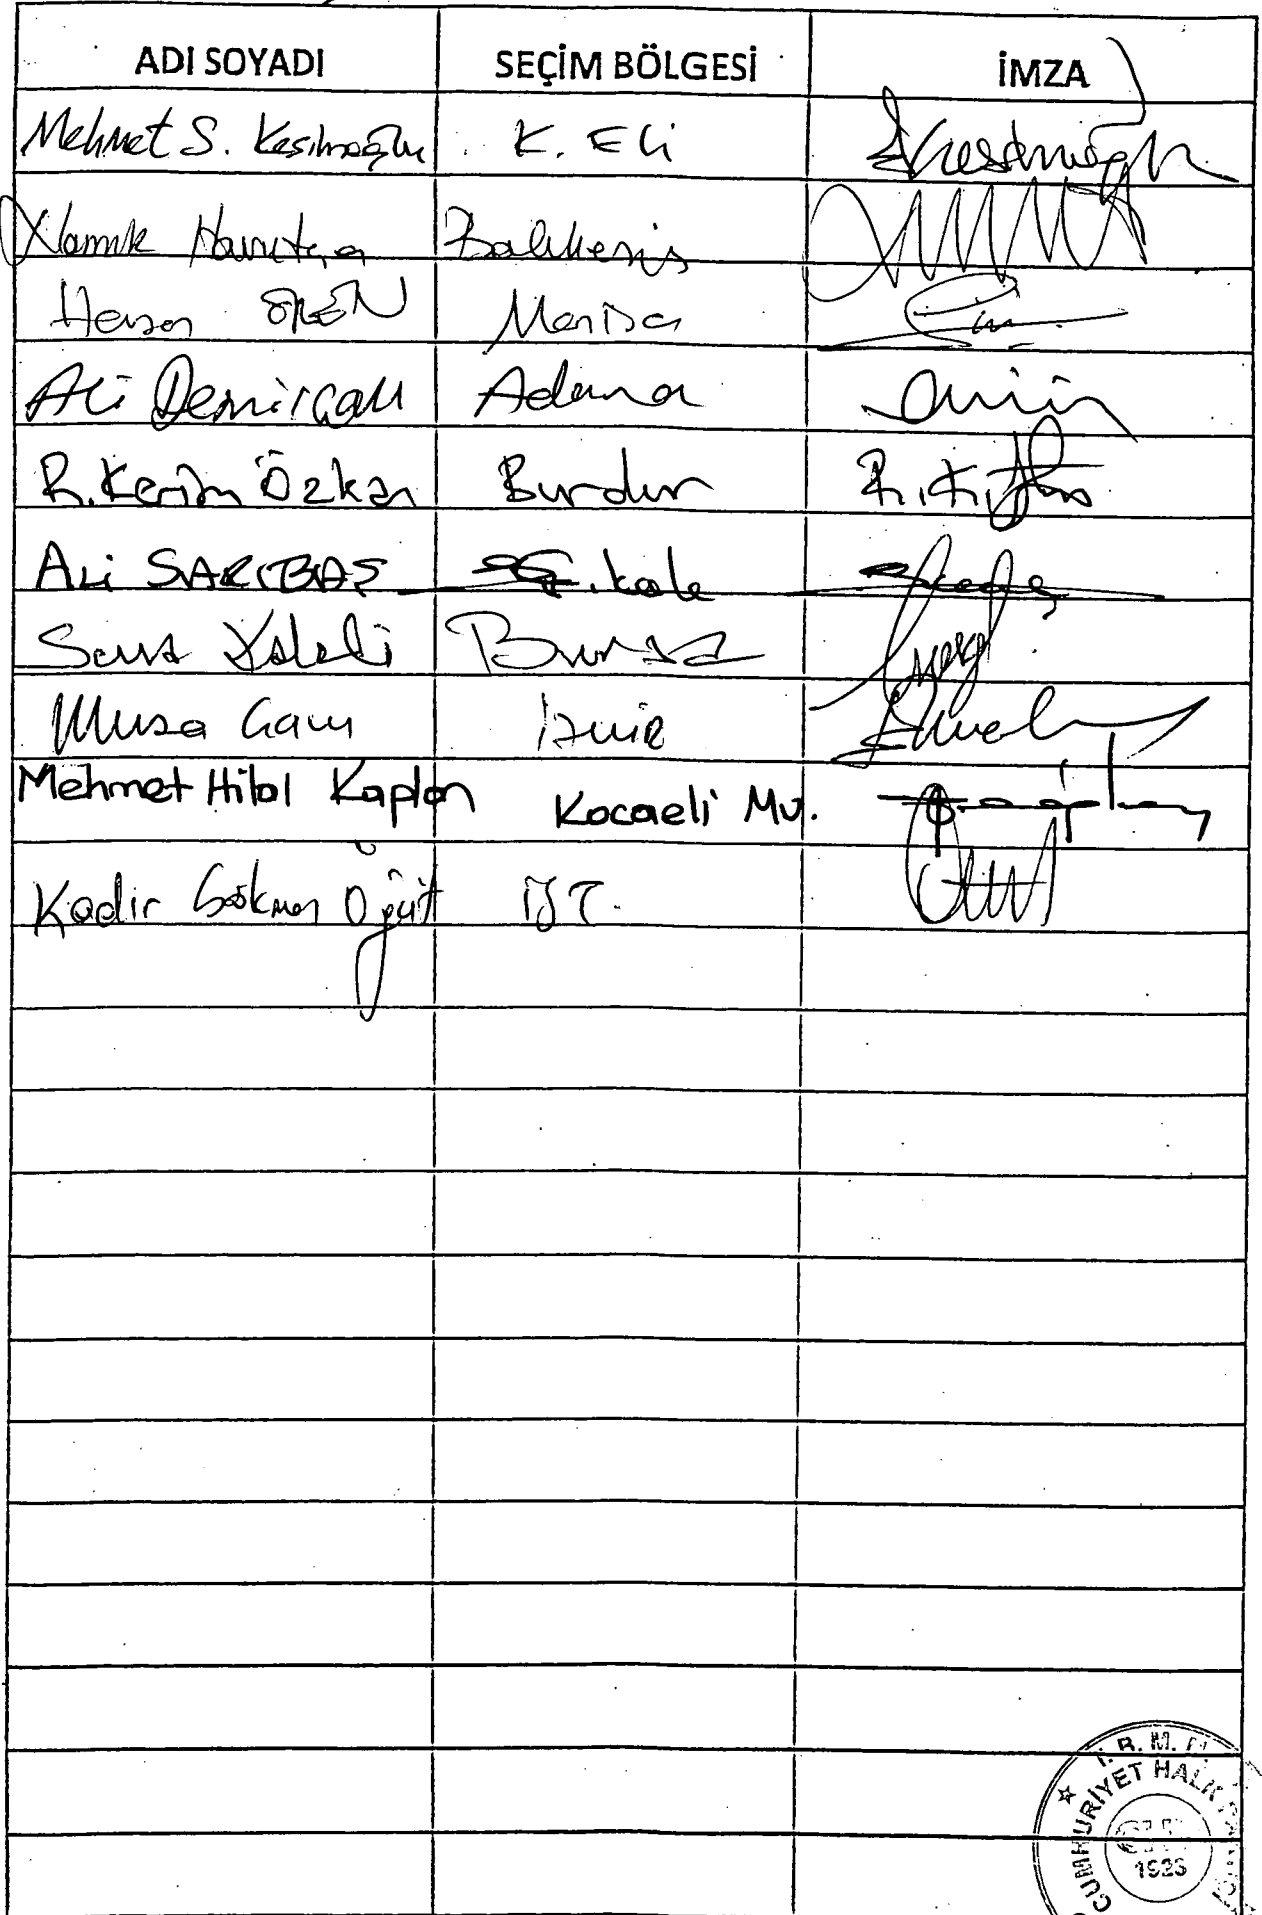 ADI SOYADI SEÇİM BÖLGESİ İMZA
Mehmet S. Kesimoğlu K. Eli
Namık Havutça Balıkesir
Hasan ÖREN Manisa
Ali Demirçalı Adana
R. Kerim Özkan Burdur R. K.
Ali SARIBAŞ Ç. kale
Sena Kaleli Bursa
Musa Çam İzmir
Mehmet Hilal Kaplan Kocaeli Mv.
Kadir Gökmen Öğüt İST.
T. B. M. M.
CUMHURİYET HALK
1923